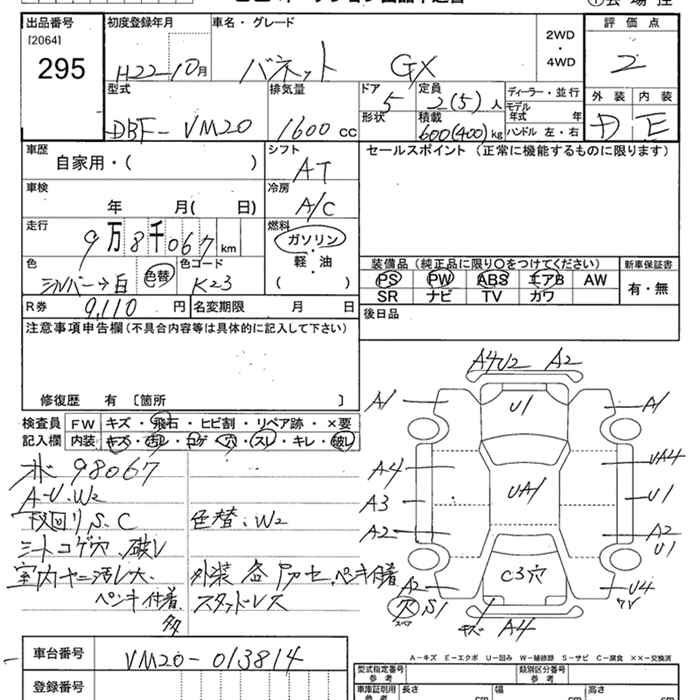 出品番号
[2064]
295
初度登録年月
H22-10月
車名・グレード
バネット GX
2WD
・
4WD
評価点
2
外装 内装
D E
型式
DBF-VM20
排気量
1600 cc
ドア
5
形状
定員
2(5)人
積載
600(400)kg
ディーラー・並行
モデル
年式 年
ハンドル 左・右
車歴
自家用・( )
シフト
AT
車検
年 月( 日)
冷房
A/C
走行
9万8千067km
燃料
ガソリン
・
軽・油
( )
色
シルバー→白 色替
色コード
K23
R券 9,110円
名変期限 月 日
セールスポイント(正常に機能するものに限ります)
装備品(純正品に限り○をつけてください)
PS PW ABS エアB AW
SR ナビ TV カワ
新車保証書
有・無
後日品
注意事項申告欄(不具合内容等は具体的に記入して下さい)
修復歴 有 [箇所 ]
検査員
記入欄
FW キズ・飛石・ヒビ割・リペア跡・×要
内装 キズ・汚レ・コゲ・穴・スレ・キレ・破レ
98067
A-U.W2
下回りS.C
シートコゲ穴.破レ
室内ヤニ汚レ大.
ペンキ付着
多
色替.W2
ペンキ付着
スタッドレス
A4U2 A2
A1 U1 A1
A4 UA4
A3 UA1 U1
A2 A2
U1
A2 C3穴 U4
穴 S1
スペア
キズ A4
A-キズ E-エクボ U-凹み W-補修跡 S-サビ C-腐食 ××-交換済
車台番号
VM20-013814
登録番号
型式指定番号
参考
類別区分番号
車庫証明用
参考
長さ cm
幅 cm
高さ cm